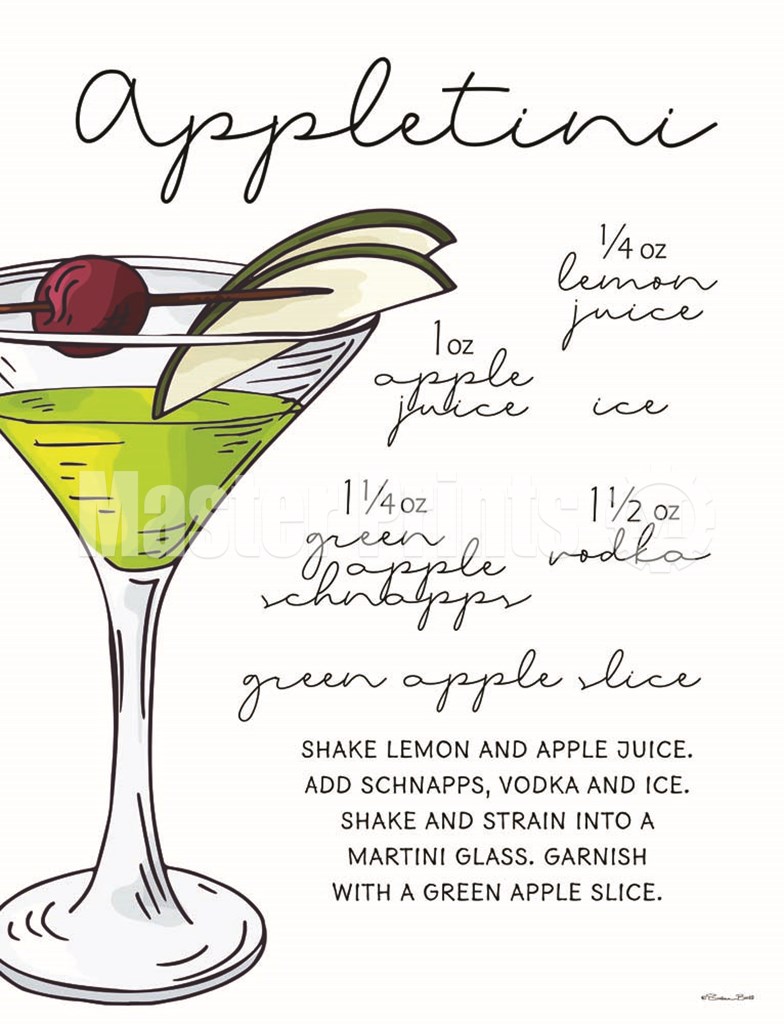 Appletini
1/4 oz
lemon
juice
1 oz
apple
juice
ice
1 1/4 oz
green
apple
schnapps
1 1/2 oz
vodka
Master Prints
green apple slice
SHAKE LEMON AND APPLE JUICE.
ADD SCHNAPPS, VODKA AND ICE.
SHAKE AND STRAIN INTO A
MARTINI GLASS. GARNISH
WITH A GREEN APPLE SLICE.